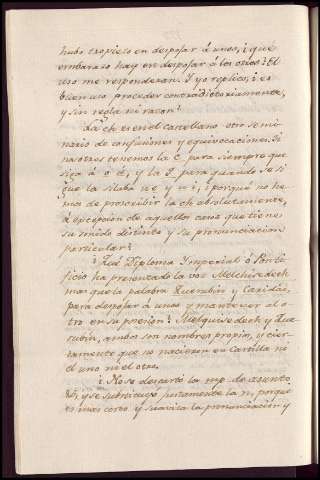 hubo tropieso en despojar á unos, ¿qué
embaraso hay en despojar á los otros? El
uso me responderan. Y yo replico, ¿es
buen uso proceder contradictoriamente,
y sin regla ni razon?
La ch es en el castellano otro semi-
nario de confusiones y equivocaciones. Si
nosotros tenemos la C para siempre que
siga á o é, y la Q para quando se si
gue la silaba u e y u i, ¿porqué no he
mos de proscribir la ch absolutamente,
á excepcion de aquellos casos que tiene
su sonido distinto y su pronunciacion
particular?
¿Qué Diploma Ymperial ó Ponti-
ficio ha presentado la voz Melchisedech
mas que la palabra Querubin y Caridad,
para despojar á unos y mantener al o-
tro en su posecion? Melquisedech y Que
rubin, ambos son nombres propios, y cier-
tamente que no nacieron en Castilla ni
el uno ni el otro.
¿No se descartó la mp. de asento,
y se substituyó justamente la n, porque
es mas corto y suaviza la pronunciacion y